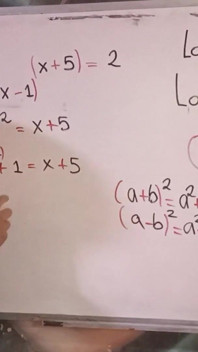 (x+5) = 2
x-1)
2 = x+5
+ 1 = x+5
Lo
Lo
(a+b)² = a²+
(a-b)² = a²